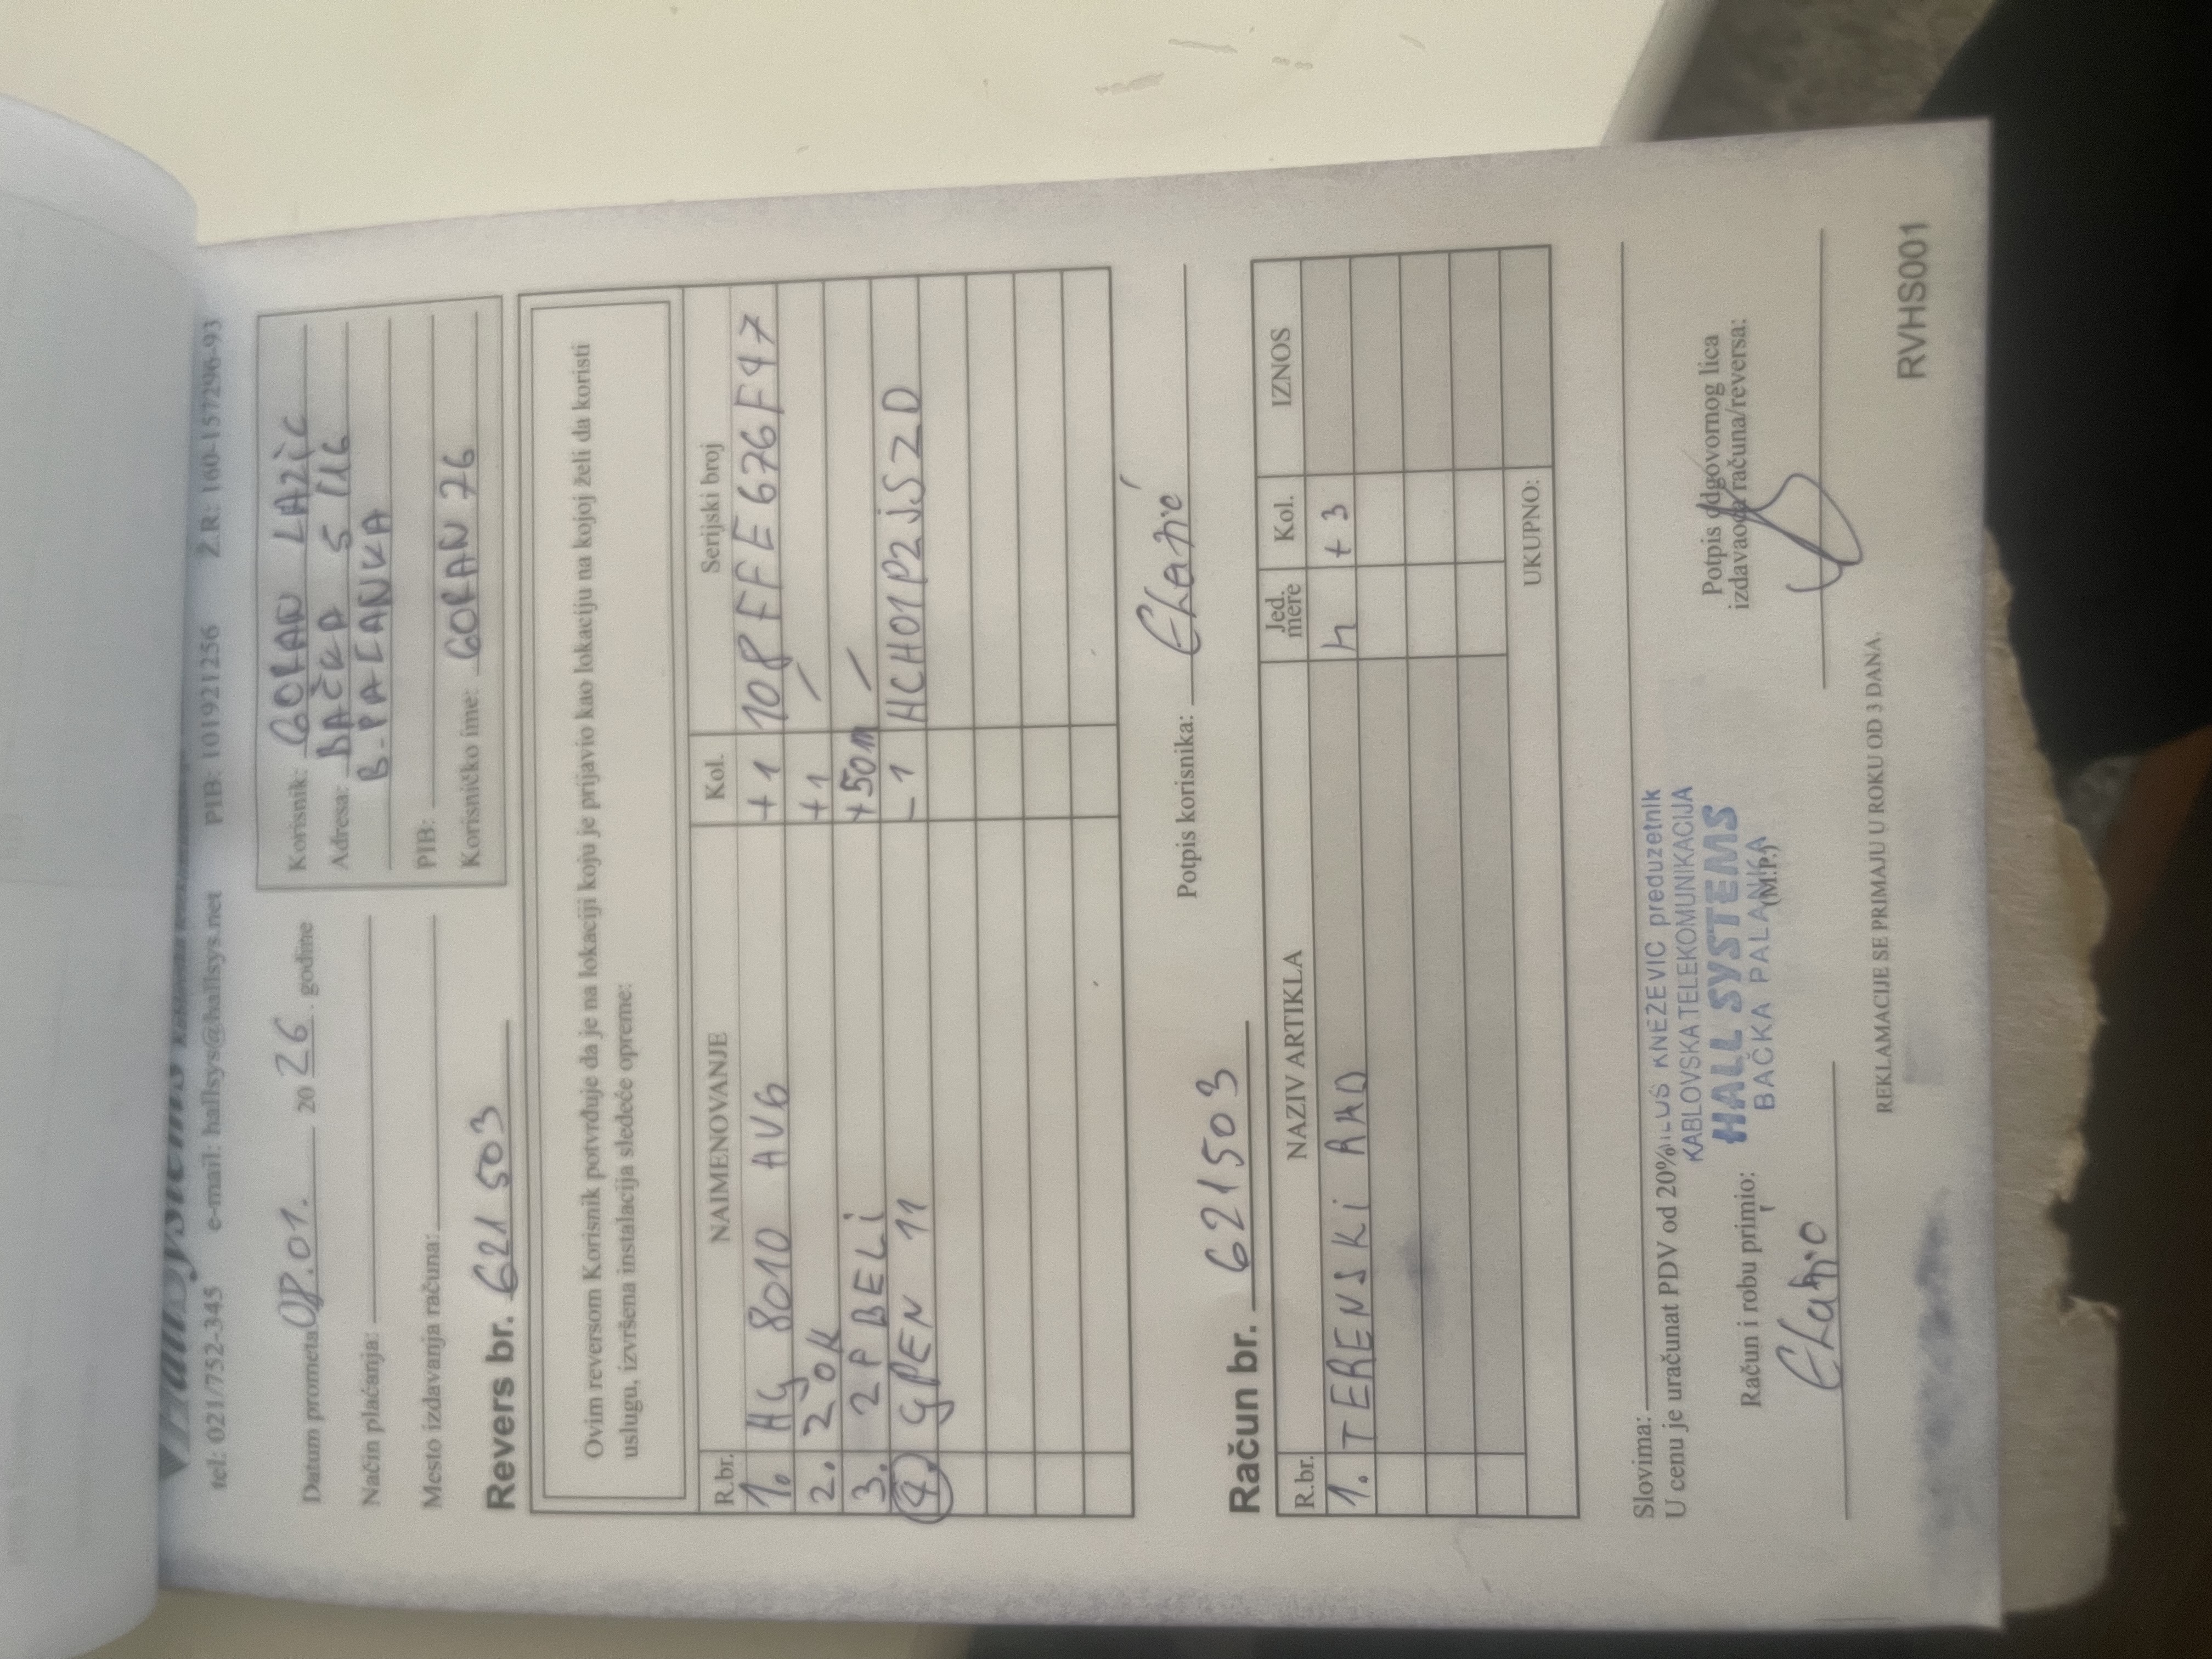 HallSystems
tel: 021/752-345 e-mail: hallsys@hallsys.net PIB: 101921256 Ž.R: 160-157296-93
Datum prometa 08.01. 20 26. godine
Način plaćanja:
Mesto izdavanja računa:
Korisnik: GORAN LAZiĆ
Adresa: BAČKA 5
B. PALANKA
PIB:
Korisničko ime: GORAN 76
Revers br. 621503
Ovim reversom Korisnik potvrđuje da je na lokaciji koju je prijavio kao lokaciju na kojoj želi da koristi
uslugu, izvršena instalacija sledeće opreme:
R.br. NAIMENOVANJE Kol. Serijski broj
1. HG 8010 AV6 +1 108FFE676F47
2. ZOK +1 /
3. 2P BELi +50m /
4. GPEN 11 -1 HCH01P2jSZD
Potpis korisnika:
Račun br. 621503
R.br. NAZIV ARTIKLA Jed. mere Kol. IZNOS
1. TERENSKi RAD h +3
UKUPNO:
Slovima:
U cenu je uračunat PDV od 20%
MILUŠ KNEŽEVIĆ preduzetnik
KABLOVSKA TELEKOMUNIKACIJA
HALL SYSTEMS
BAČKA PALANKA
(M.P.)
Račun i robu primio:
Potpis odgovornog lica
izdavaoca računa/reversa:
REKLAMACIJE SE PRIMAJU U ROKU OD 3 DANA.
RVHS001